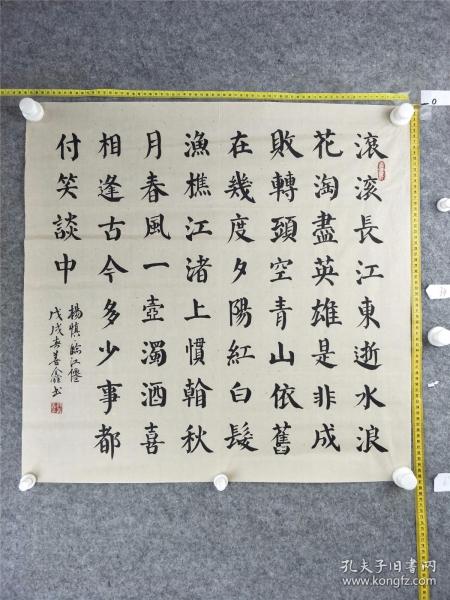 滾滾長江東逝水浪
花淘盡英雄是非成
敗轉頭空青山依舊
在幾度夕陽紅白髮
漁樵江渚上慣翰秋
月春風一壺濁酒喜
相逢古今多少事都
付笑談中
楊慎臨江僊
戊戌春善鑫书
孔夫子旧书网
www.kongfz.com